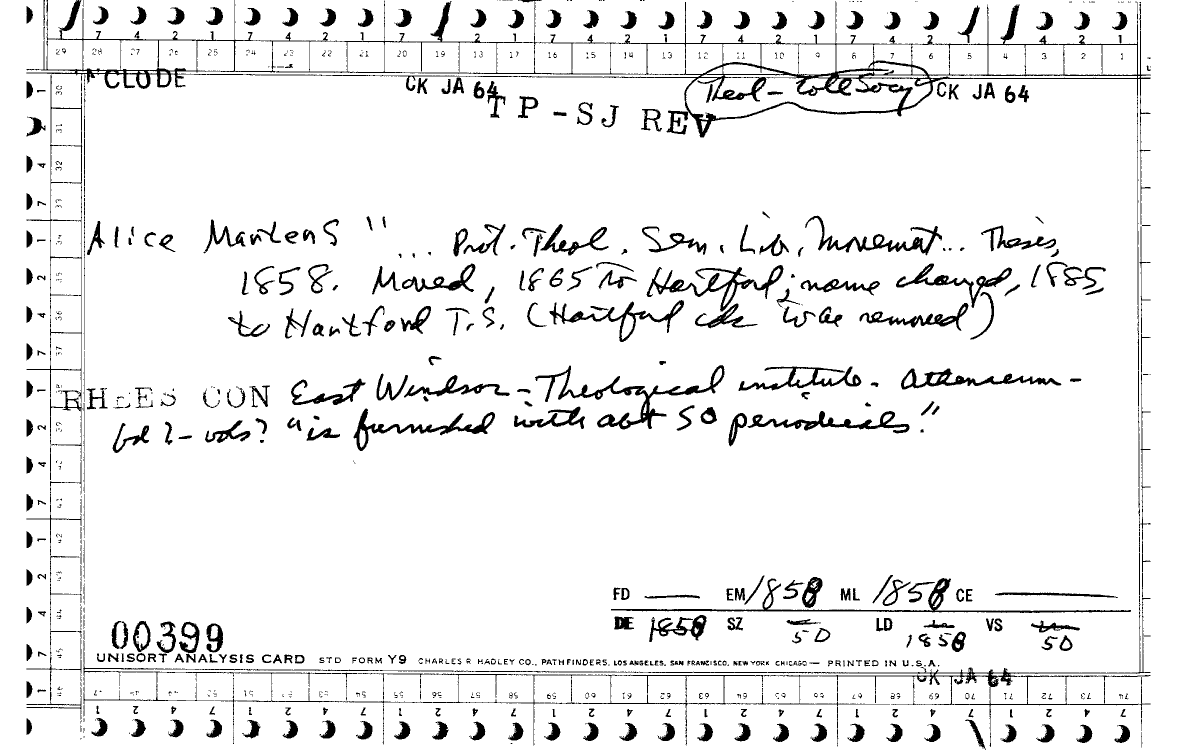 7 4 2 1 7 4 2 1 7 4 2 1 7 4 2 1 7 4 2 1 7 4 2 1 7 4 2 1
29 28 27 26 25 24 23 22 21 20 19 18 17 16 15 14 13 12 11 10 9 8 7 6 5 4 3 2 1
CLODE CK JA 64 Theol – Coll Socy CK JA 64
TP-SJ REV
Alice Martens " ... Prot. Theol. Sem. Lib. Movement... Thesis,
1858. Moved, 1865 to Hartford; name changed, 1885,
to Hartford T.S. (Hartford cds to be removed)
RHEES CON East Windsor – Theological institute. Athenaeum –
fd ? – vols? "is furnished with abt 50 periodicals."
FD — EM 1858 ML 1858 CE —
DE 1858 SZ — 50 LD 1858 VS 50
00399
UNISORT ANALYSIS CARD STD FORM Y9 CHARLES R HADLEY CO., PATHFINDERS, LOS ANGELES, SAN FRANCISCO, NEW YORK CHICAGO — PRINTED IN U.S.A.
CK JA 64